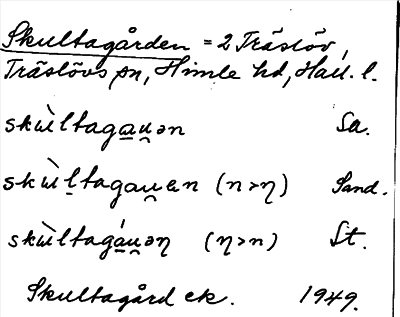 Skultagården = 2 Träslöv,
Träslövs sn, Himle hd, Hall. l.
skùltagau̯ən Sa.
skùltagau̯en (n>η) Sand.
skùltagáu̯əη (η>n) St.
Skultagård ek. 1949.